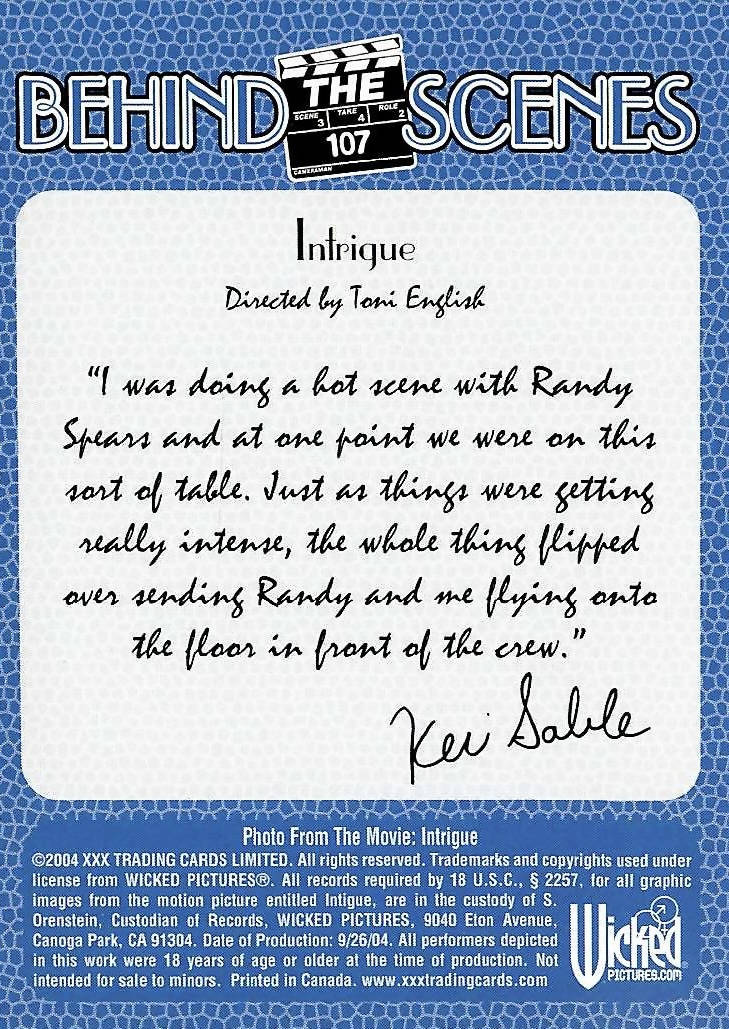 BEHIND THE SCENES
SCENE 3 TAKE 4 ROLE 2
107
CAMERAMAN
Intrigue
Directed by Toni English
"I was doing a hot scene with Randy
Spears and at one point we were on this
sort of table. Just as things were getting
really intense, the whole thing flipped
over sending Randy and me flying onto
the floor in front of the crew."
Keri Sable
Photo From The Movie: Intrigue
©2004 XXX TRADING CARDS LIMITED. All rights reserved. Trademarks and copyrights used under
license from WICKED PICTURES®. All records required by 18 U.S.C., § 2257, for all graphic
images from the motion picture entitled Intigue, are in the custody of S.
Orenstein, Custodian of Records, WICKED PICTURES, 9040 Eton Avenue,
Canoga Park, CA 91304. Date of Production: 9/26/04. All performers depicted
in this work were 18 years of age or older at the time of production. Not
intended for sale to minors. Printed in Canada. www.xxxtradingcards.com
Wicked
PICTURES.COM